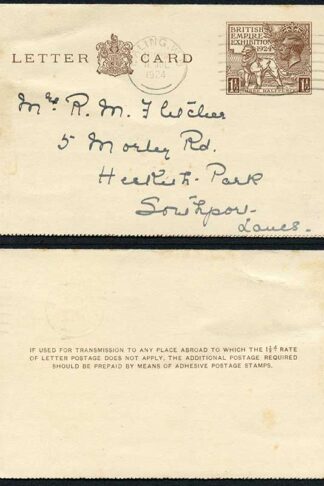 LETTER CARD
1924
BRITISH
EMPIRE
EXHIBITION
1924
1½ 1½
Mrs R. M. Fletcher
5 Morley Rd.
Hesketh Park
Southport
Lancs.
IF USED FOR TRANSMISSION TO ANY PLACE ABROAD TO WHICH THE 1½d RATE
OF LETTER POSTAGE DOES NOT APPLY, THE ADDITIONAL POSTAGE REQUIRED
SHOULD BE PREPAID BY MEANS OF ADHESIVE POSTAGE STAMPS.